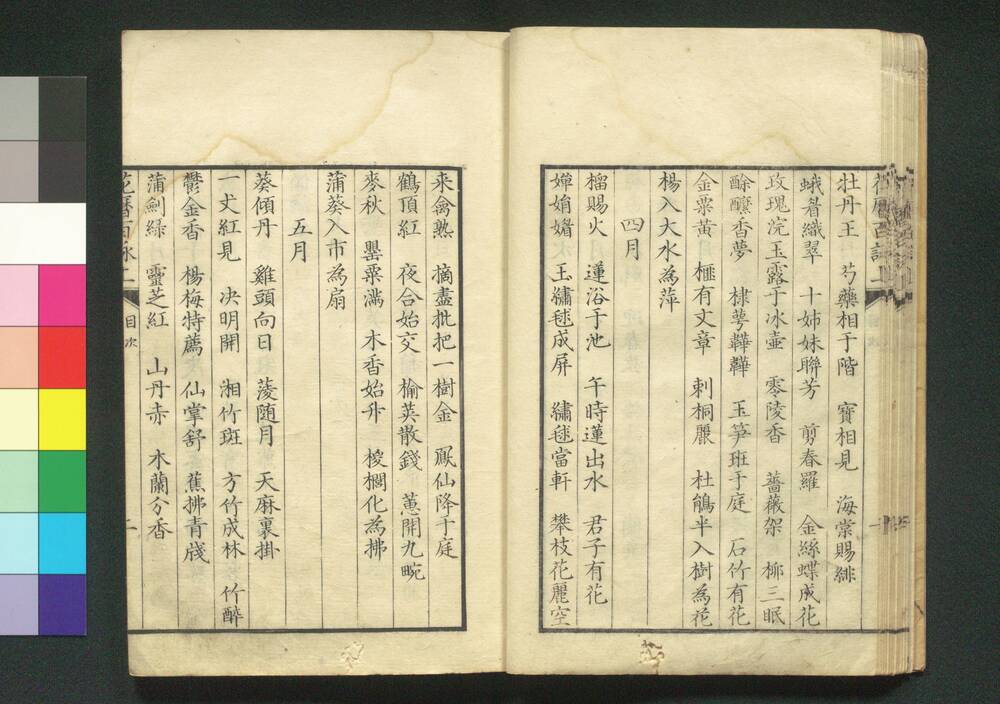 牡丹王　芍藥相于階　寳相見　海棠賜緋
蛾眉織翠　十姉妹聯芳　剪春羅　金絲蝶成花
玫瑰浣玉露于冰壷　零陵香　薔薇架　柳三眠
酴醿香夢　棣萼韡韡　玉笋班于庭　石竹有花
金粟黃　榧有文章　刺桐麗　杜鵑半入樹為花
楊入大水為萍
四月
榴賜火　蓮浴于池　午時蓮出水　君子有花
嬋娟媚　玉繡毬成屏　繡毬當軒　攀枝花麗空
来禽熟　摘盡批把一樹金　鳳仙降于庭
鶴頂紅　夜合始交　榆莢散錢　蕙開九畹
麥秋　罌粟滿　木香始升　椶櫚化為拂
蒲葵入市為扇
五月
葵傾丹　雞頭向日　菱随月　天麻裏掛
一丈紅見　决明開　湘竹斑　方竹成林　竹醉
鬱金香　楊梅特薦　仙掌舒　蕉拂青牋
蒲劍綠　靈芝紅　山丹赤　木蘭分香
花曆百詠二　目次　二